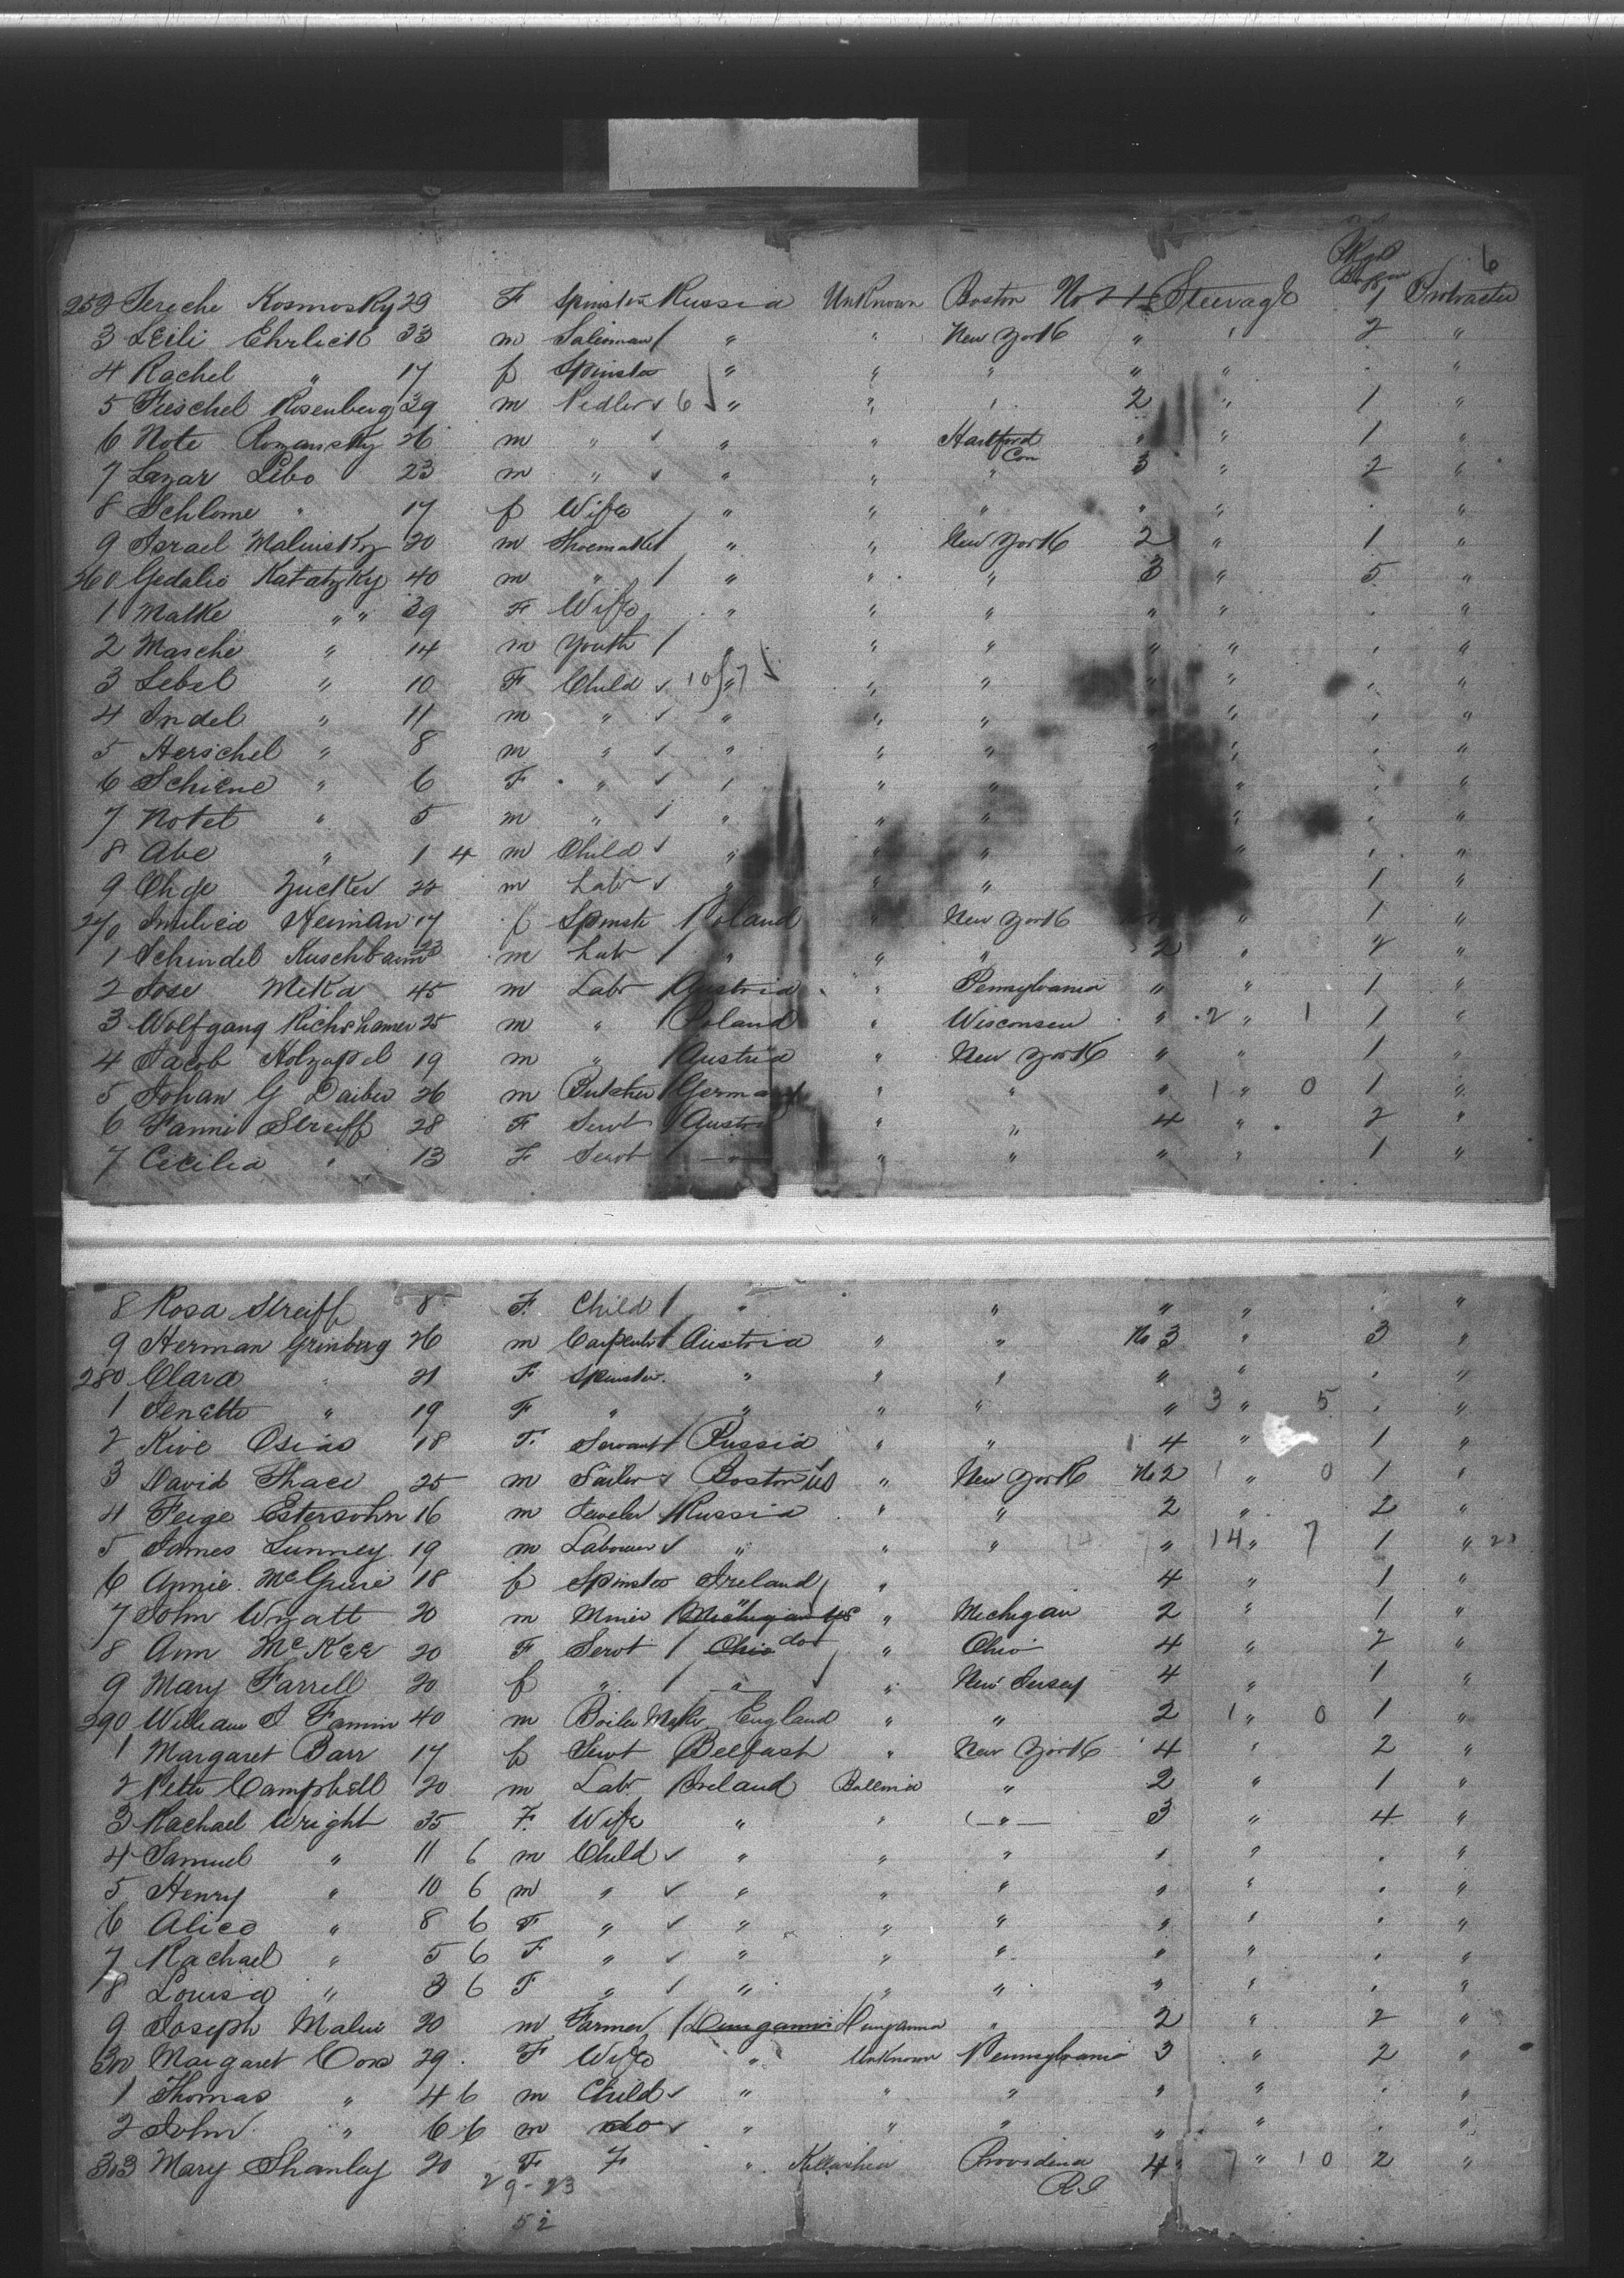 Pkgs 6
252 Kosmosky 29 F Spinster Russia Unknown Boston No 1 Steerage 1 Protracted
3 Leili Ehrlick 33 m Salesman / " " New York " " 2 "
4 Rachel " 17 f Spinster " " " " " . "
5 Fieschel Rosenberg 39 m Pedler ✓ 6 " " " 2 " 1 "
6 Note Rozansky 26 m " ✓ " " Hartford Con " " 1 "
7 Lazar Lebo 23 m " ✓ " " " 3 " 2 "
8 Schlome " 17 f Wife " " " " " . "
9 Israel Malinsky 20 m Shoemaker / " " New York 2 " 1 "
260 Gedalie Katatzky 40 m " / " " " 3 " 5 "
1 Malke " " 39 F Wife " " " " " . "
2 Masche " 14 m Youth / " " " " " . "
3 Lebel " 10 F Child ✓ 10 / 7 " " " " " . "
4 Indel " 11 m " ✓ " " " " . "
5 Herschel " 8 m " ✓ " " " " " . "
6 Schiene " 6 F " ✓ " " " " . "
7 Notel " 5 m " / " " " " . "
8 Abe " 1 4 m Child ✓ " " " . "
9 Zucker 22 m Labr ✓ " " " 1 "
270 Heiman 17 f Spinstr Poland " New York " 1 "
1 Schindel Kuschbaum 23 m Labr / " " " 2 " 2 "
2 Jose Meka 45 m Labr / Austria " Pennsylvania " " 1 "
3 Wolfgang 25 m " / Poland " Wisconsin " 2 " 1 1 "
4 Jacob Holzapel 19 m " / Austria " New York " " 1 "
5 Johan G Daiber 26 m Butcher / Germany " " " 1 " 0 1 "
6 Fanni Streiff 28 F Servt / Austria " " 4 " 2 "
7 Cicilia " 13 F Servt / " " " " " 1 "
8 Rosa Streiff 8 F. Child / " " " " . "
9 Herman Grinberg 26 m Carpenter / Austria " " No 3 " 3 "
280 Clara " 21 F Spinster. " " " " " . "
1 Jenette " 19 F " " " " " 3 " 5 . "
2 Kive Osias 18 F. Servant / Russia " " 4 " 1 "
3 David Thace 25 m Sailor ✓ Boston US " New York No 2 1 " 0 1 "
4 Feige Estersohn 16 m Jeweler / Russia " " 2 " 2 "
5 James Lunney 19 m Labourer ✓ " " " 14 " 14 " 7 1 "
6 Annie McGuire 18 f Spinster Ireland " 4 " 1 "
7 John Wyatt 20 m Miner / Michigan US " Michigan 2 " 1 "
8 Ann McKee 20 F Servt / Ohio do " Ohio 4 " 2 "
9 Mary Farrell 20 f " / " " New Jersey 4 " 1 "
290 William J 40 m Boiler Maker England " " 2 1 " 0 1 "
1 Margaret Barr 17 f Servt / Belfast " New York 4 " 2 "
2 Peter Campbell 20 m Labr / Ireland " 2 " 1 "
3 Rachael Wright 35 F. Wife " " " 3 " 4 "
4 Samuel " 11 6 m Child ✓ " " " " " . "
5 Henry " 10 6 m " ✓ " " " " " . "
6 Alice " 8 6 F " ✓ " " " " " . "
7 Rachael " 5 6 F " ✓ " " " " " . "
8 Louisa " 3 6 F " / " " " " " . "
9 Joseph 20 m Farmer / Dungannon Dungannon " 2 " 2 "
300 Margaret 29 F Wife " Unknown Pennsylvania 3 " 2 "
1 Thomas " 4 6 m Child ✓ " " " " " . "
2 John " 6 6 m do ✓ " " " " " . "
303 Mary Shanley 20 F F " Providence R.I 4 " 7 " 10 2 "
29-23
52